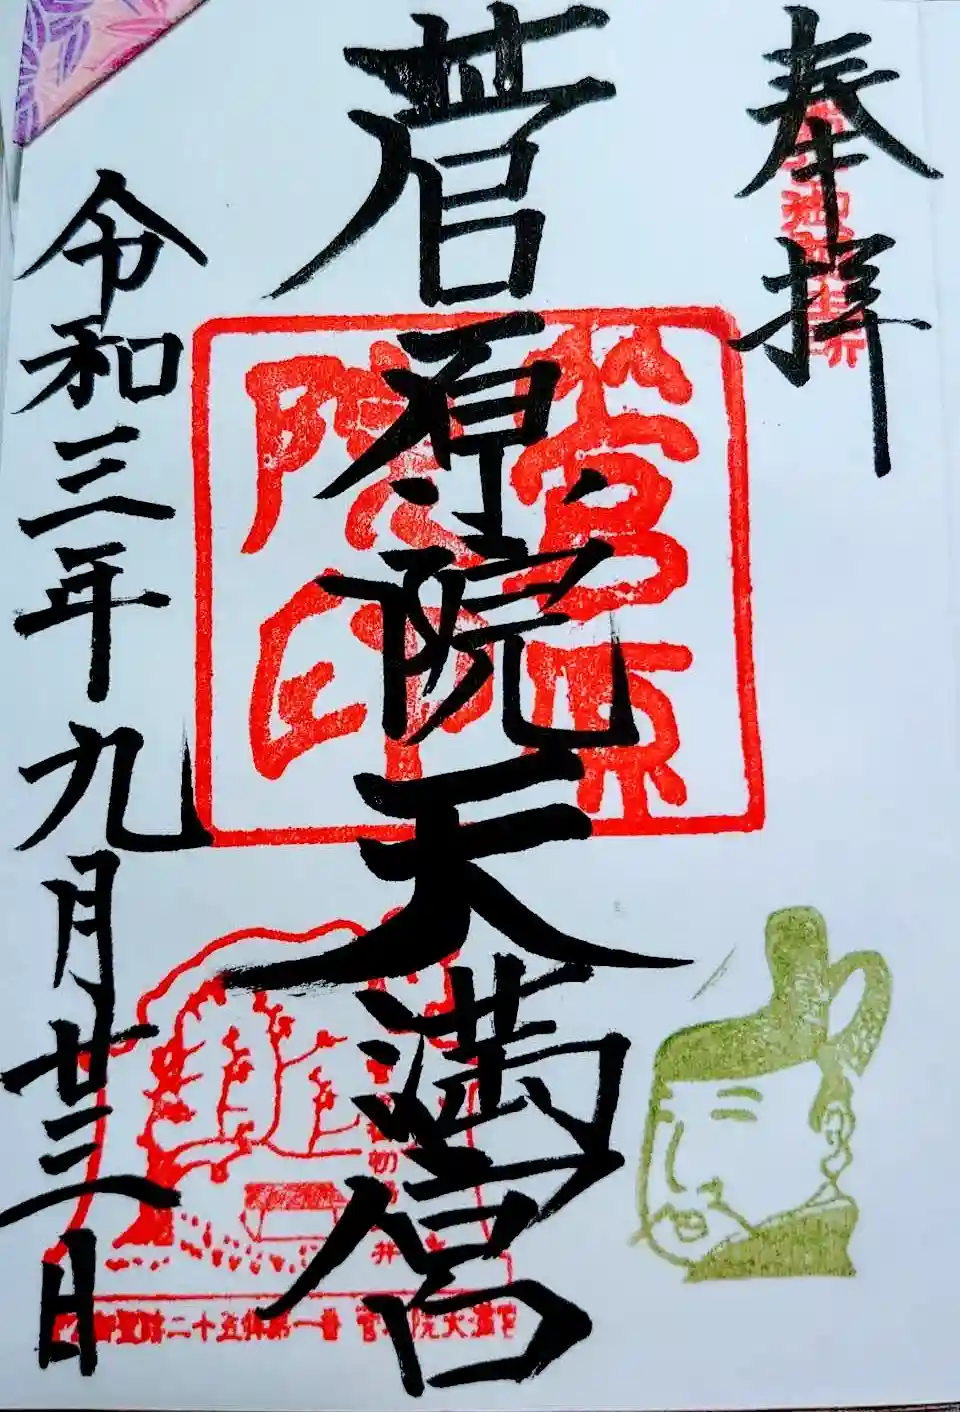 奉拝
菅原院天満宮
令和三年九月廿三日
菅原院印
二十五拝第一番 菅原院天満宮